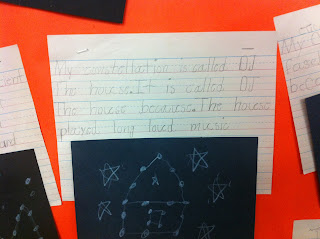 My constellation is called DJ
The house. It is called DJ
The house because. The house
played long loved music